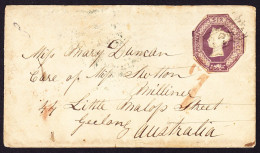 Miss Mary Duncan
Care of Newton
Milliner
Little Malop Street
Geelong
Australia